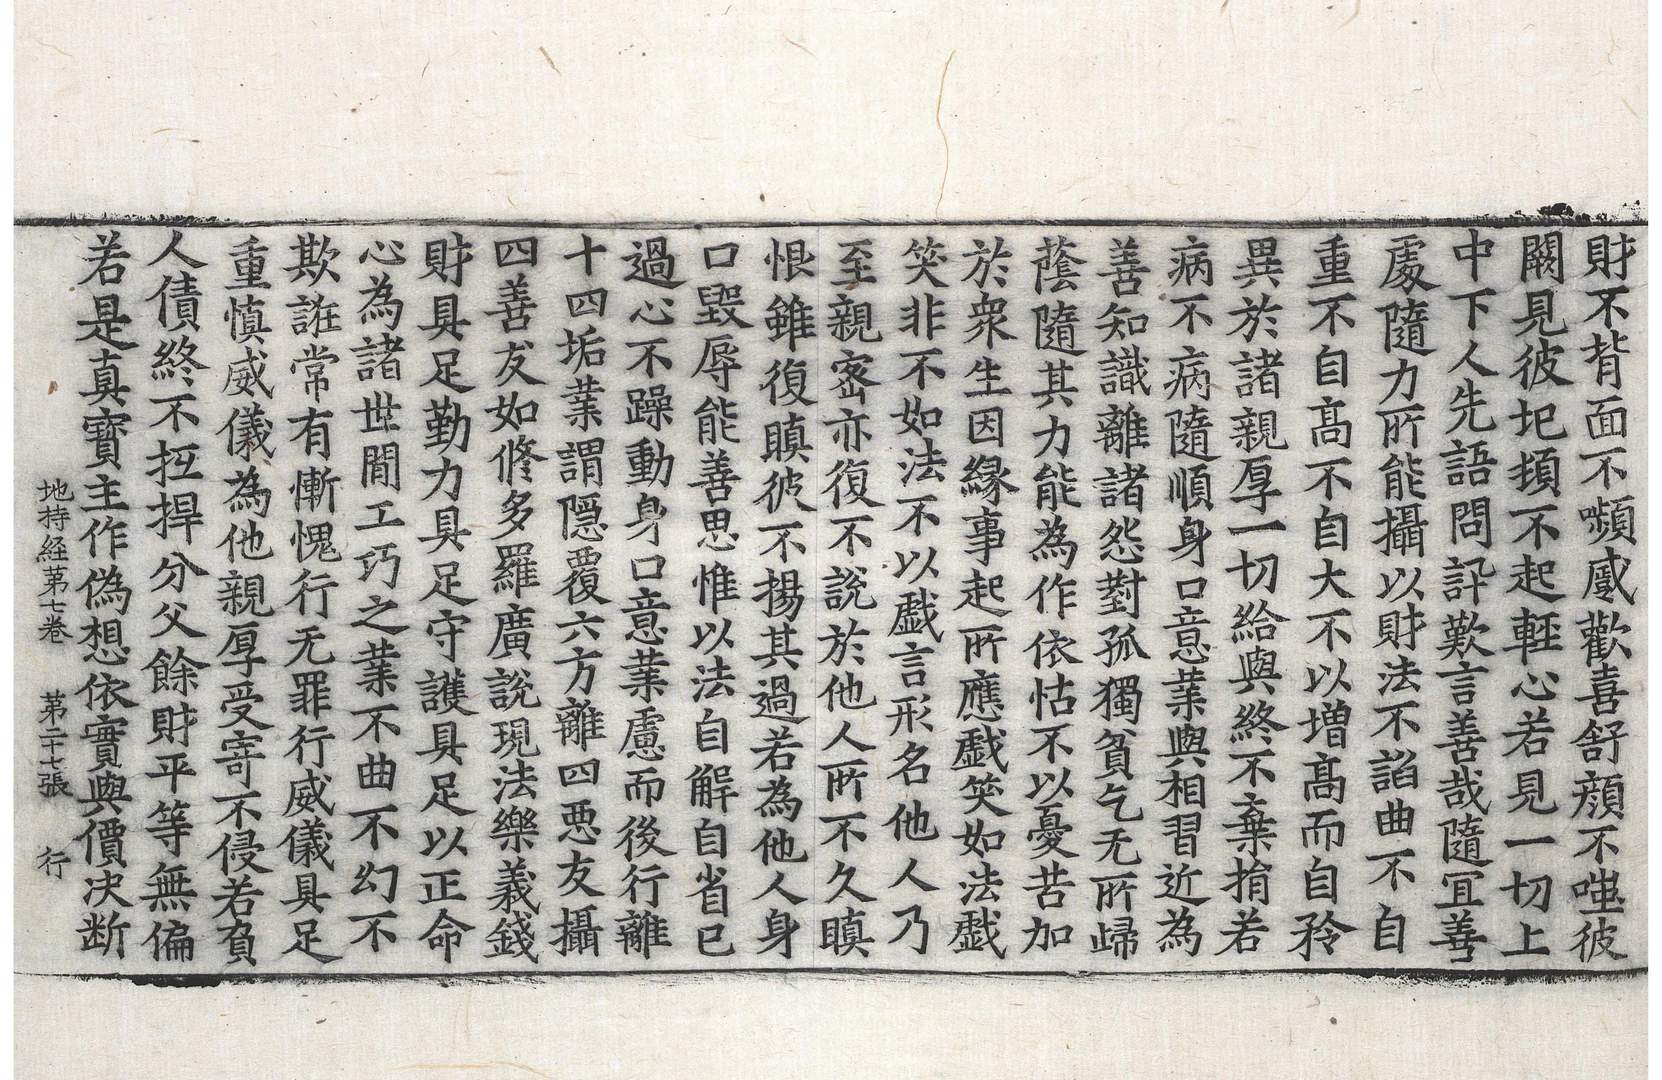 財不背面不嚬蹙歡喜舒顔不嗤彼
闕見彼圯頓不起輕心若見一切上
中下人先語問訊歎言善哉隨宜善
處隨力所能攝以財法不諂曲不自
重不自高不自大不以增高而自矜
異於諸親厚一切給與終不棄捐若
病不病隨順身口意業與相習近為
善知識離諸怨對孤獨貧乞无所歸
蔭隨其力能為作依怙不以憂苦加
於衆生因縁事起所應戲笑如法戲
笑非不如法不以戲言形名他人乃
至親密亦復不說於他人所不久瞋
恨雖復瞋彼不揚其過若為他人身
口毀辱能善思惟以法自解自省已
過心不躁動身口意業慮而後行離
十四垢業謂隱覆六方離四惡友攝
四善友如修多羅廣說現法樂義錢
財具足勤力具足守護具足以正命
心為諸世間工巧之業不曲不幻不
欺誑常有慚愧行无罪行威儀具足
重慎威儀為他親厚受寄不侵若負
人債終不抵捍分父餘財平等無偏
若是真寶主作偽想依實與價决斷
地持経第七卷 第二十七張 行